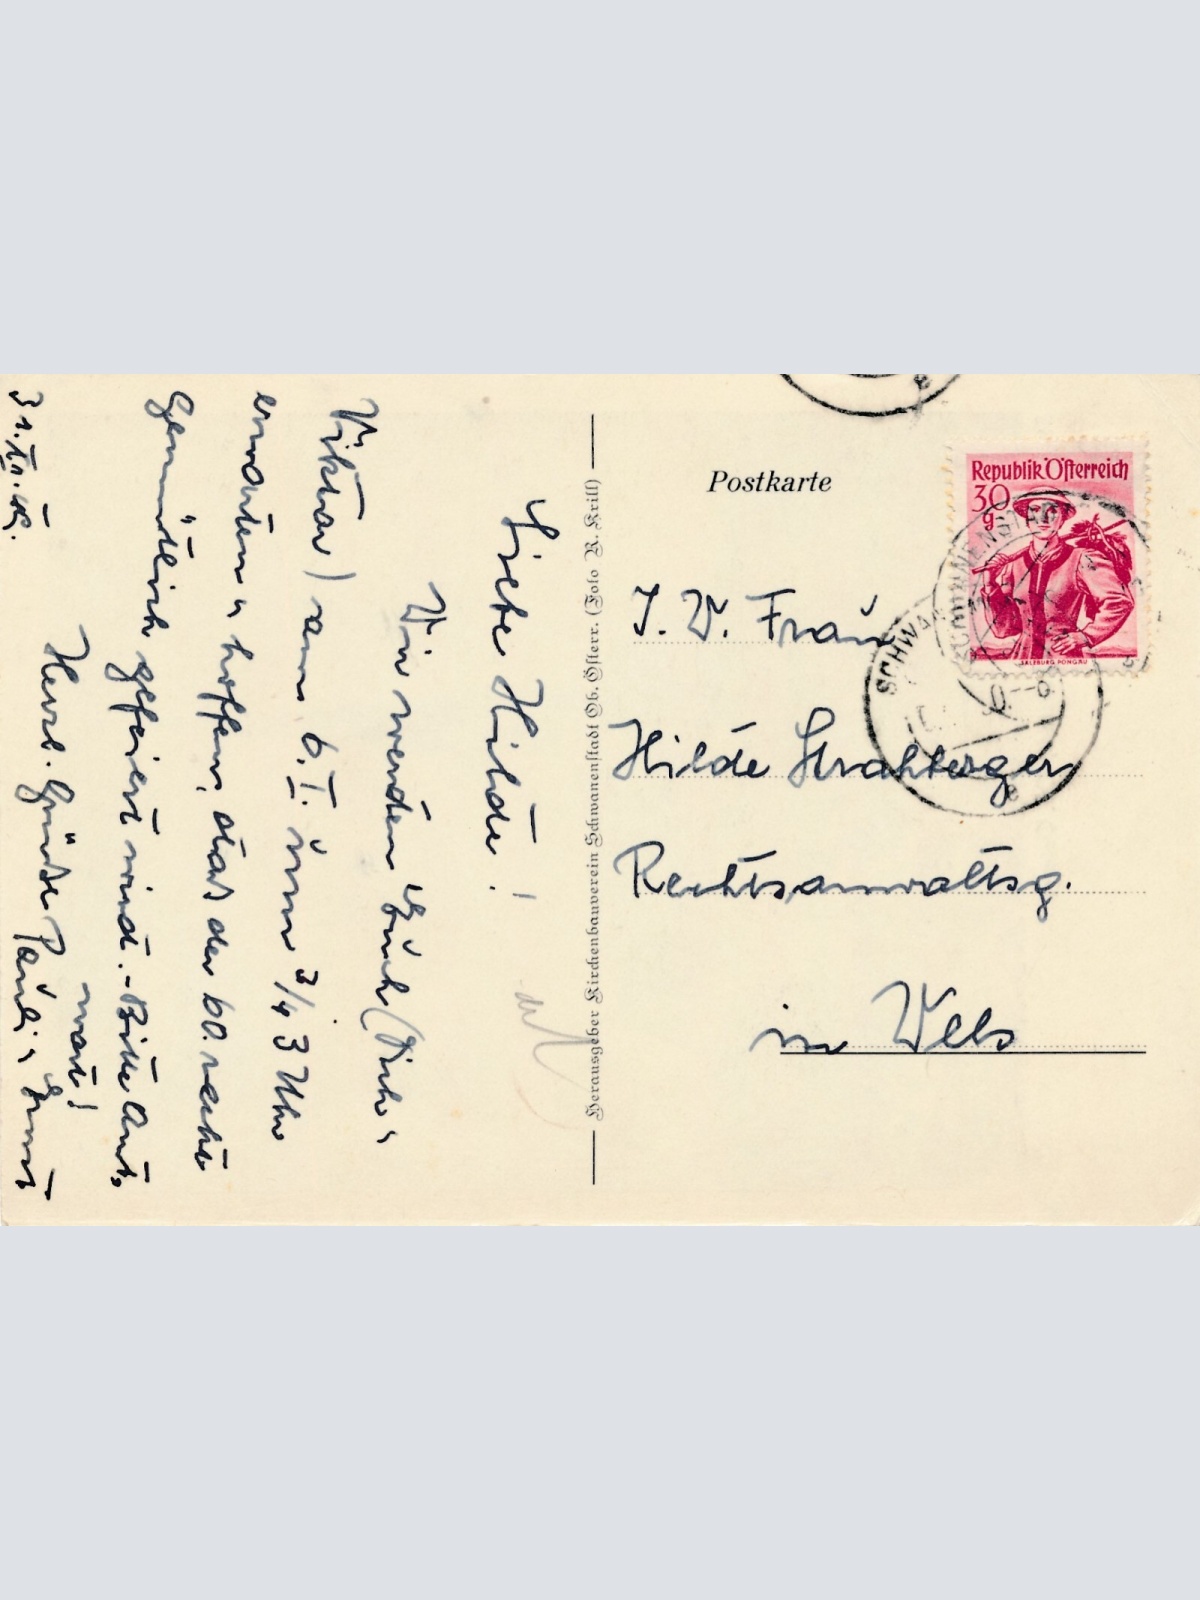 Liebe Hilde!
Wir werden Euch (Dich u
Viktor) am 6. I. um 3/4 3 Uhr
erwarten u hoffen, daß der 60. recht
gemütlich gefeiert wird. - Bitte Antw
wort!
Herzl. Grüße Pauli u Ernst
31. XII. 48.
Herausgeber Kirchenbauverein Schwanenstadt Ob. Österr. (Foto R. Krill)
Postkarte
Republik Österreich
30
g
SALZBURG PONGAU
SCHWANENSTADT
I. W. Frau
Hilde Strahberger
Rechtsanwaltsg.
in Wels